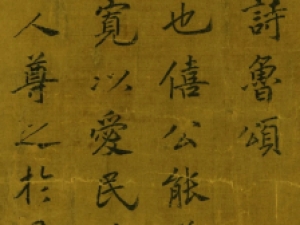 詩魯頌
也僖公能
寛以愛民
人尊之於